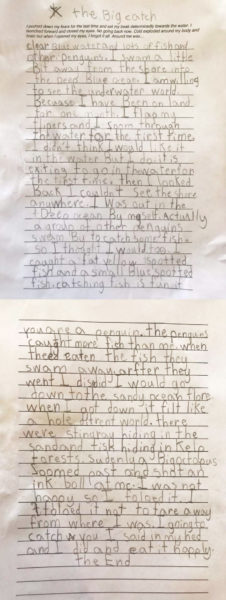 * the Big catch
I pushed down my fears for the last time and set my beak determinedly towards the water. I
screeched and closed my eyes. No going back now. Cold exploded around my body and
then when I opened my eyes, I forgot it all. Around me was...
clear Blue water and lots of fish and
other Penguins. I swam a little
bit away from the shore into
the Deep Blue ocean. I am willing
to see the underwater world.
Because I have Been on land
for one year. I flap my
flipers and I zoom through
the water for the first time.
I didn't think I would like it
in the water But I do it is
exiting to go in the water for
the first time. then I looked
Back I coudn't see the shore
anywhere. I was out in the
Deep ocean By my self. Actually
a group of other penguins
swam By to catch some fish
so I thought I would too.
caught a fat yellow spotted
fish and a small Blue spotted
fish. catching fish is fun if
you are a penguin. the penguins
caught more fish than me. when
they eaten the fish they
swam away. after they
went I disid I would go
down to the sandy ocean flore.
when I got down it filt like
a hole diferent world. there
were stingray hiding in the
sand and fish hiding in kelp
forests. Sudenly a Big octopus
zoomed past and shot an
ink ball at me. I was not
happy so I foloed it. I
foloed it not to fare away
from where I was. I going to
catch you I said in my hed
and I did and eat it happly.
the End